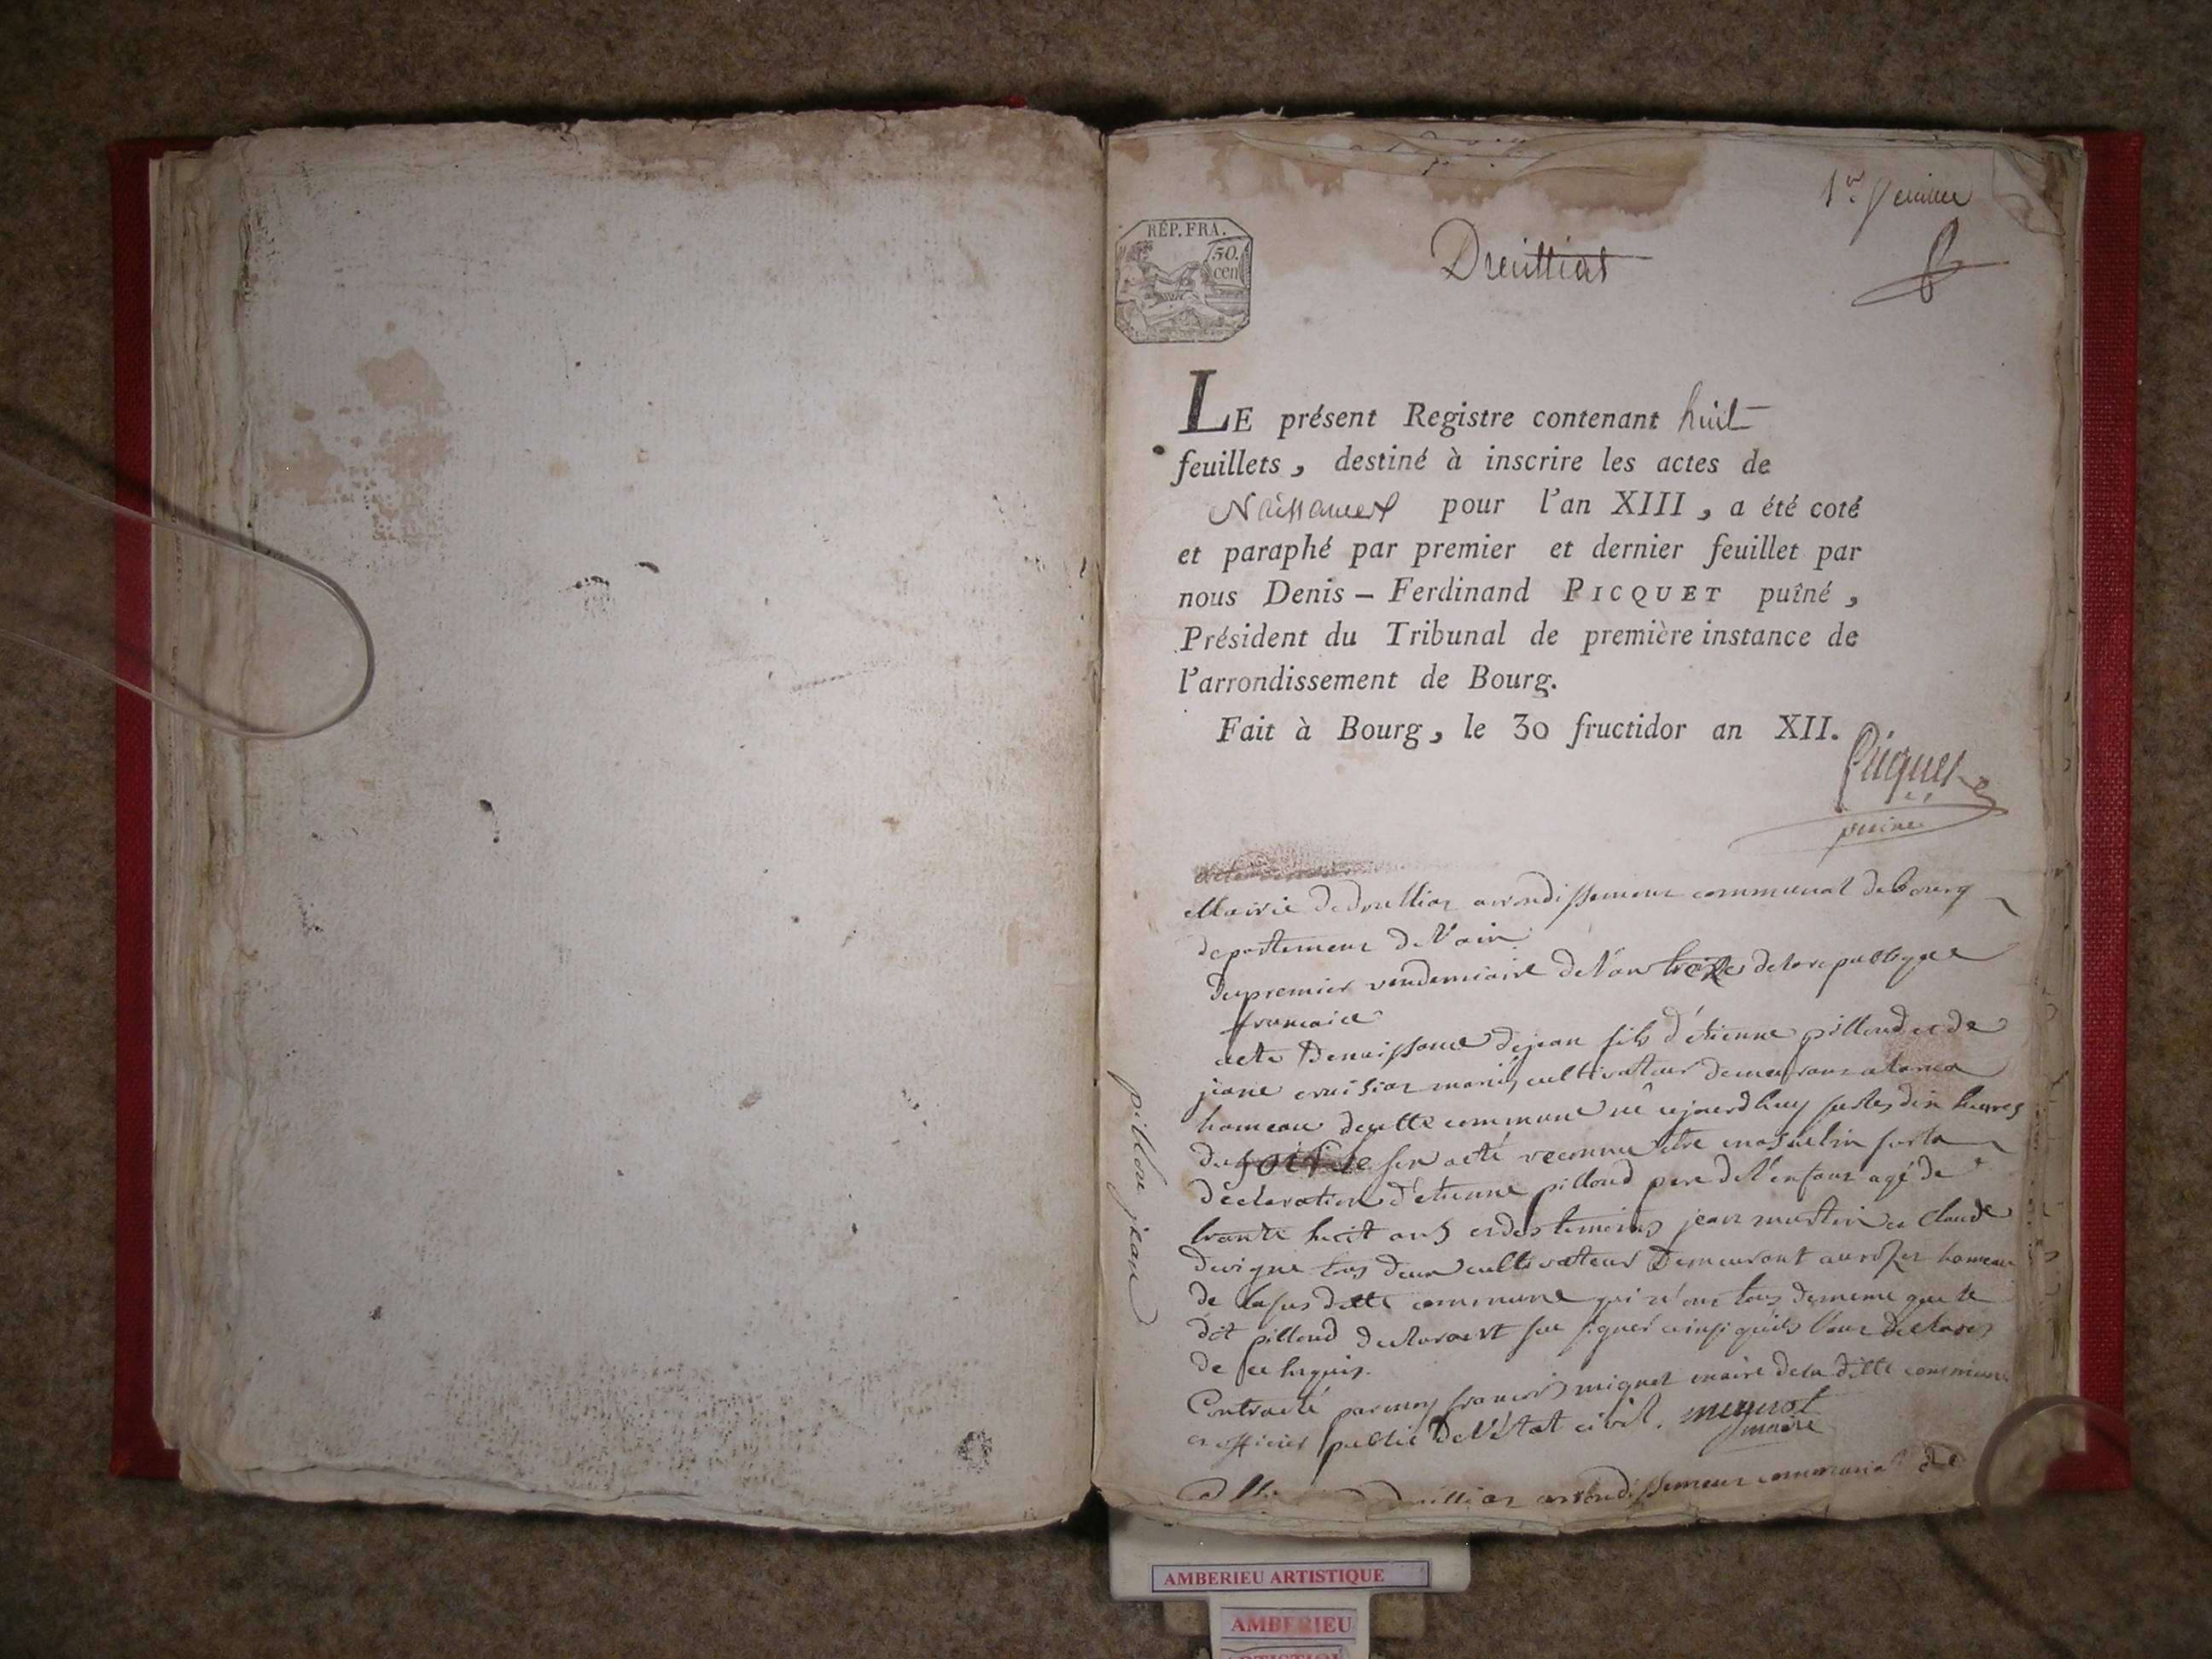 1er feuillet
RÉP. FRA.
50.
cen
Druilliat
LE présent Registre contenant huit
feuillets, destiné à inscrire les actes de
Naissances pour l'an XIII, a été coté
et paraphé par premier et dernier feuillet par
nous Denis - Ferdinand PICQUET puîné,
Président du Tribunal de première instance de
l'arrondissement de Bourg.
Fait à Bourg, le 30 fructidor an XII.
Picquet
puiné
Mairie de druilliat arrondissement communal de bourg
departement de l'ain
du premier vendemiaire de l'an treize de la republique
francaice
acte de naissance de jean fils d'étienne pilloud et de
jeane mariés cultivateur demeurant a
hameau de cette commune né aujourdhuy sur les dix heures
du soir le sex a eté reconnu etre masculin sur la
déclaration d'etienne pilloud pere de l'enfant agé de
trante huit ans et des temoins jean et Claude
devigne tous deux cultivateur demeurant au hameau
de la sus ditte commune qui n'ont tous de meme que le
dit pilloud signer ainsi qu'ils l'ont declarés
de ce
par moy francois miguet maire de la ditte commune
et officier public de l'état civil. miguet
maire
pillou jean
druilliat arrondissement communal de
AMBERIEU ARTISTIQUE
AMBERIEU
ARTISTIQU